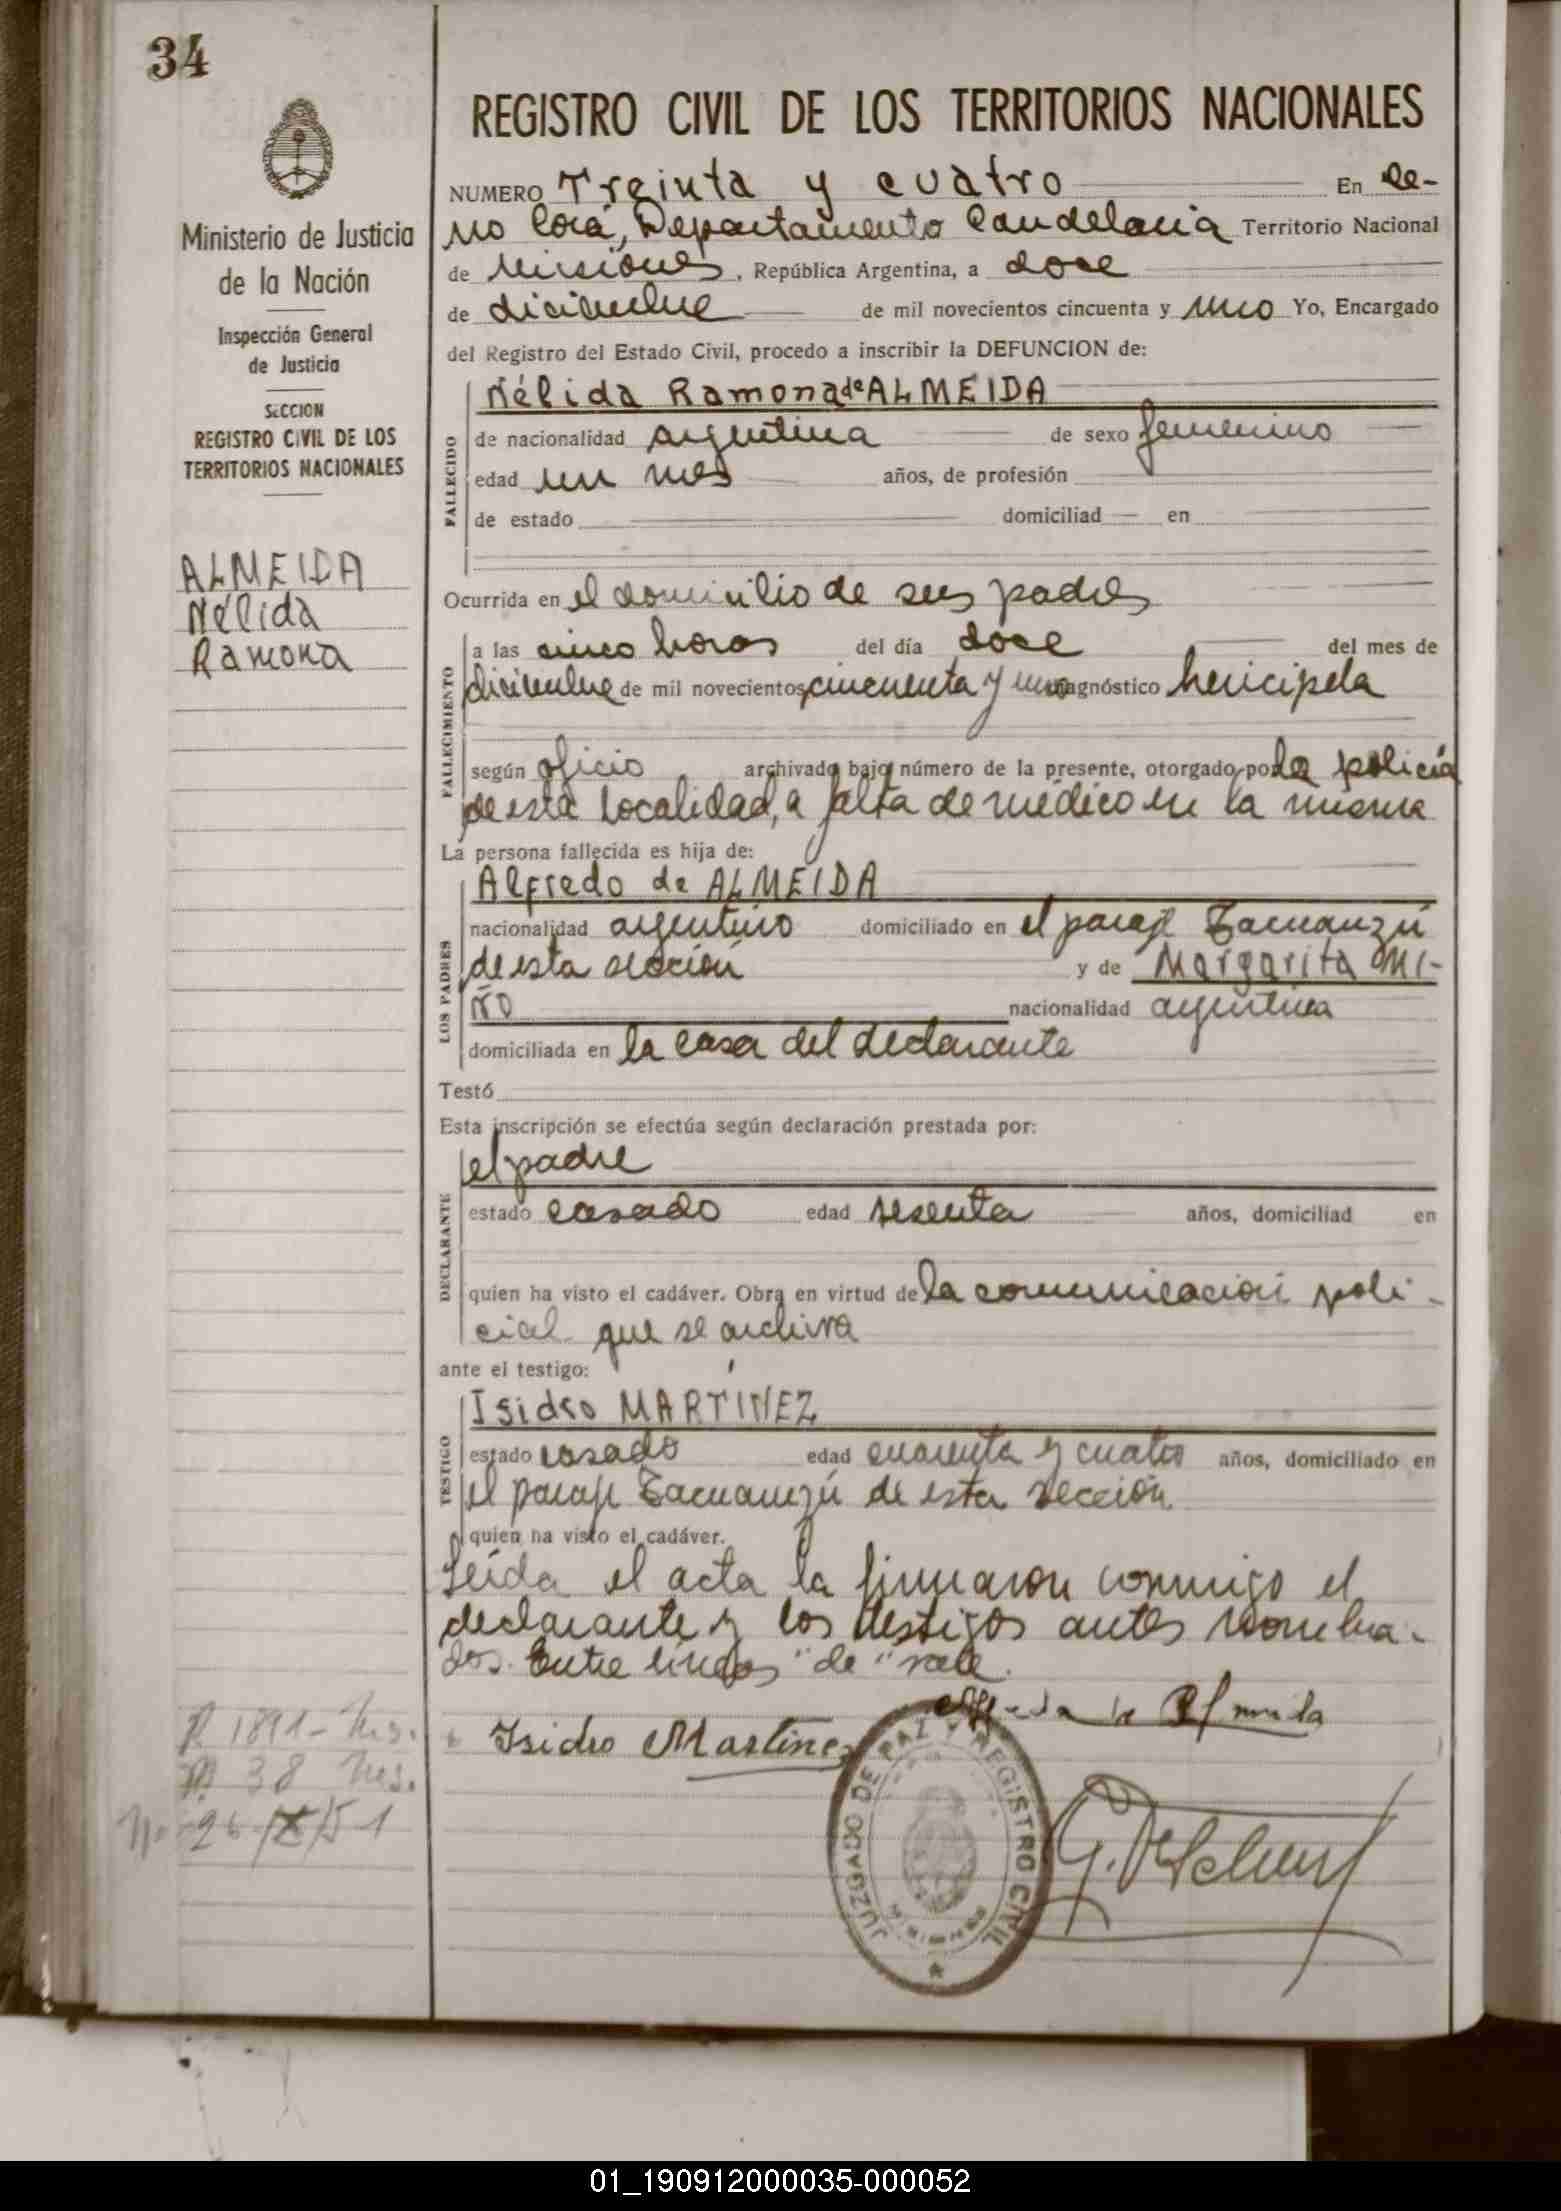 34
Ministerio de Justicia
de la Nación
Inspección General
de Justicia
SECCION
REGISTRO CIVIL DE LOS
TERRITORIOS NACIONALES
ALMEIDA
Nélida
Ramona
REGISTRO CIVIL DE LOS TERRITORIOS NACIONALES
NUMERO Treinta y cuatro En Ce-
rro Corá, Departamento Candelaria Territorio Nacional
de Misiones, República Argentina, a doce
de diciembre de mil novecientos cincuenta y uno Yo, Encargado
del Registro del Estado Civil, procedo a inscribir la DEFUNCION de:
FALLECIDO
Nélida Ramona de ALMEIDA
de nacionalidad argentina de sexo femenino
edad un mes años, de profesión
de estado domiciliad en
Ocurrida en el domicilio de sus padres
FALLECIMIENTO
a las cinco horas del día doce del mes de
diciembre de mil novecientos cincuenta y uno diagnóstico hericipela
según oficio archivado bajo número de la presente, otorgado por la policía
de esta localidad, a falta de médico en la misma
La persona fallecida es hija de:
LOS PADRES
Alfredo de ALMEIDA
nacionalidad argentino domiciliado en el paraje Tacuanzú
de esta sección y de Margarita MI-
ÑO nacionalidad argentina
domiciliada en la casa del declarante
Testó
Esta inscripción se efectúa según declaración prestada por:
DECLARANTE
el padre
estado casado edad sesenta años, domiciliad en
quien ha visto el cadáver. Obra en virtud de la comunicación poli-
cial que se archiva
ante el testigo:
TESTIGO
Isidro MARTINEZ
estado casado edad cuarenta y cuatro años, domiciliado en
el paraje Tacuanzú de esta sección
quien ha visto el cadáver.
Leída el acta la firmaron conmigo el
declarante y los testigos antes nombra-
dos. Entre líneas "de" vale.
Isidro Martinez
JUZGADO DE PAZ Y REGISTRO CIVIL
MISIONES
01_190912000035-000052